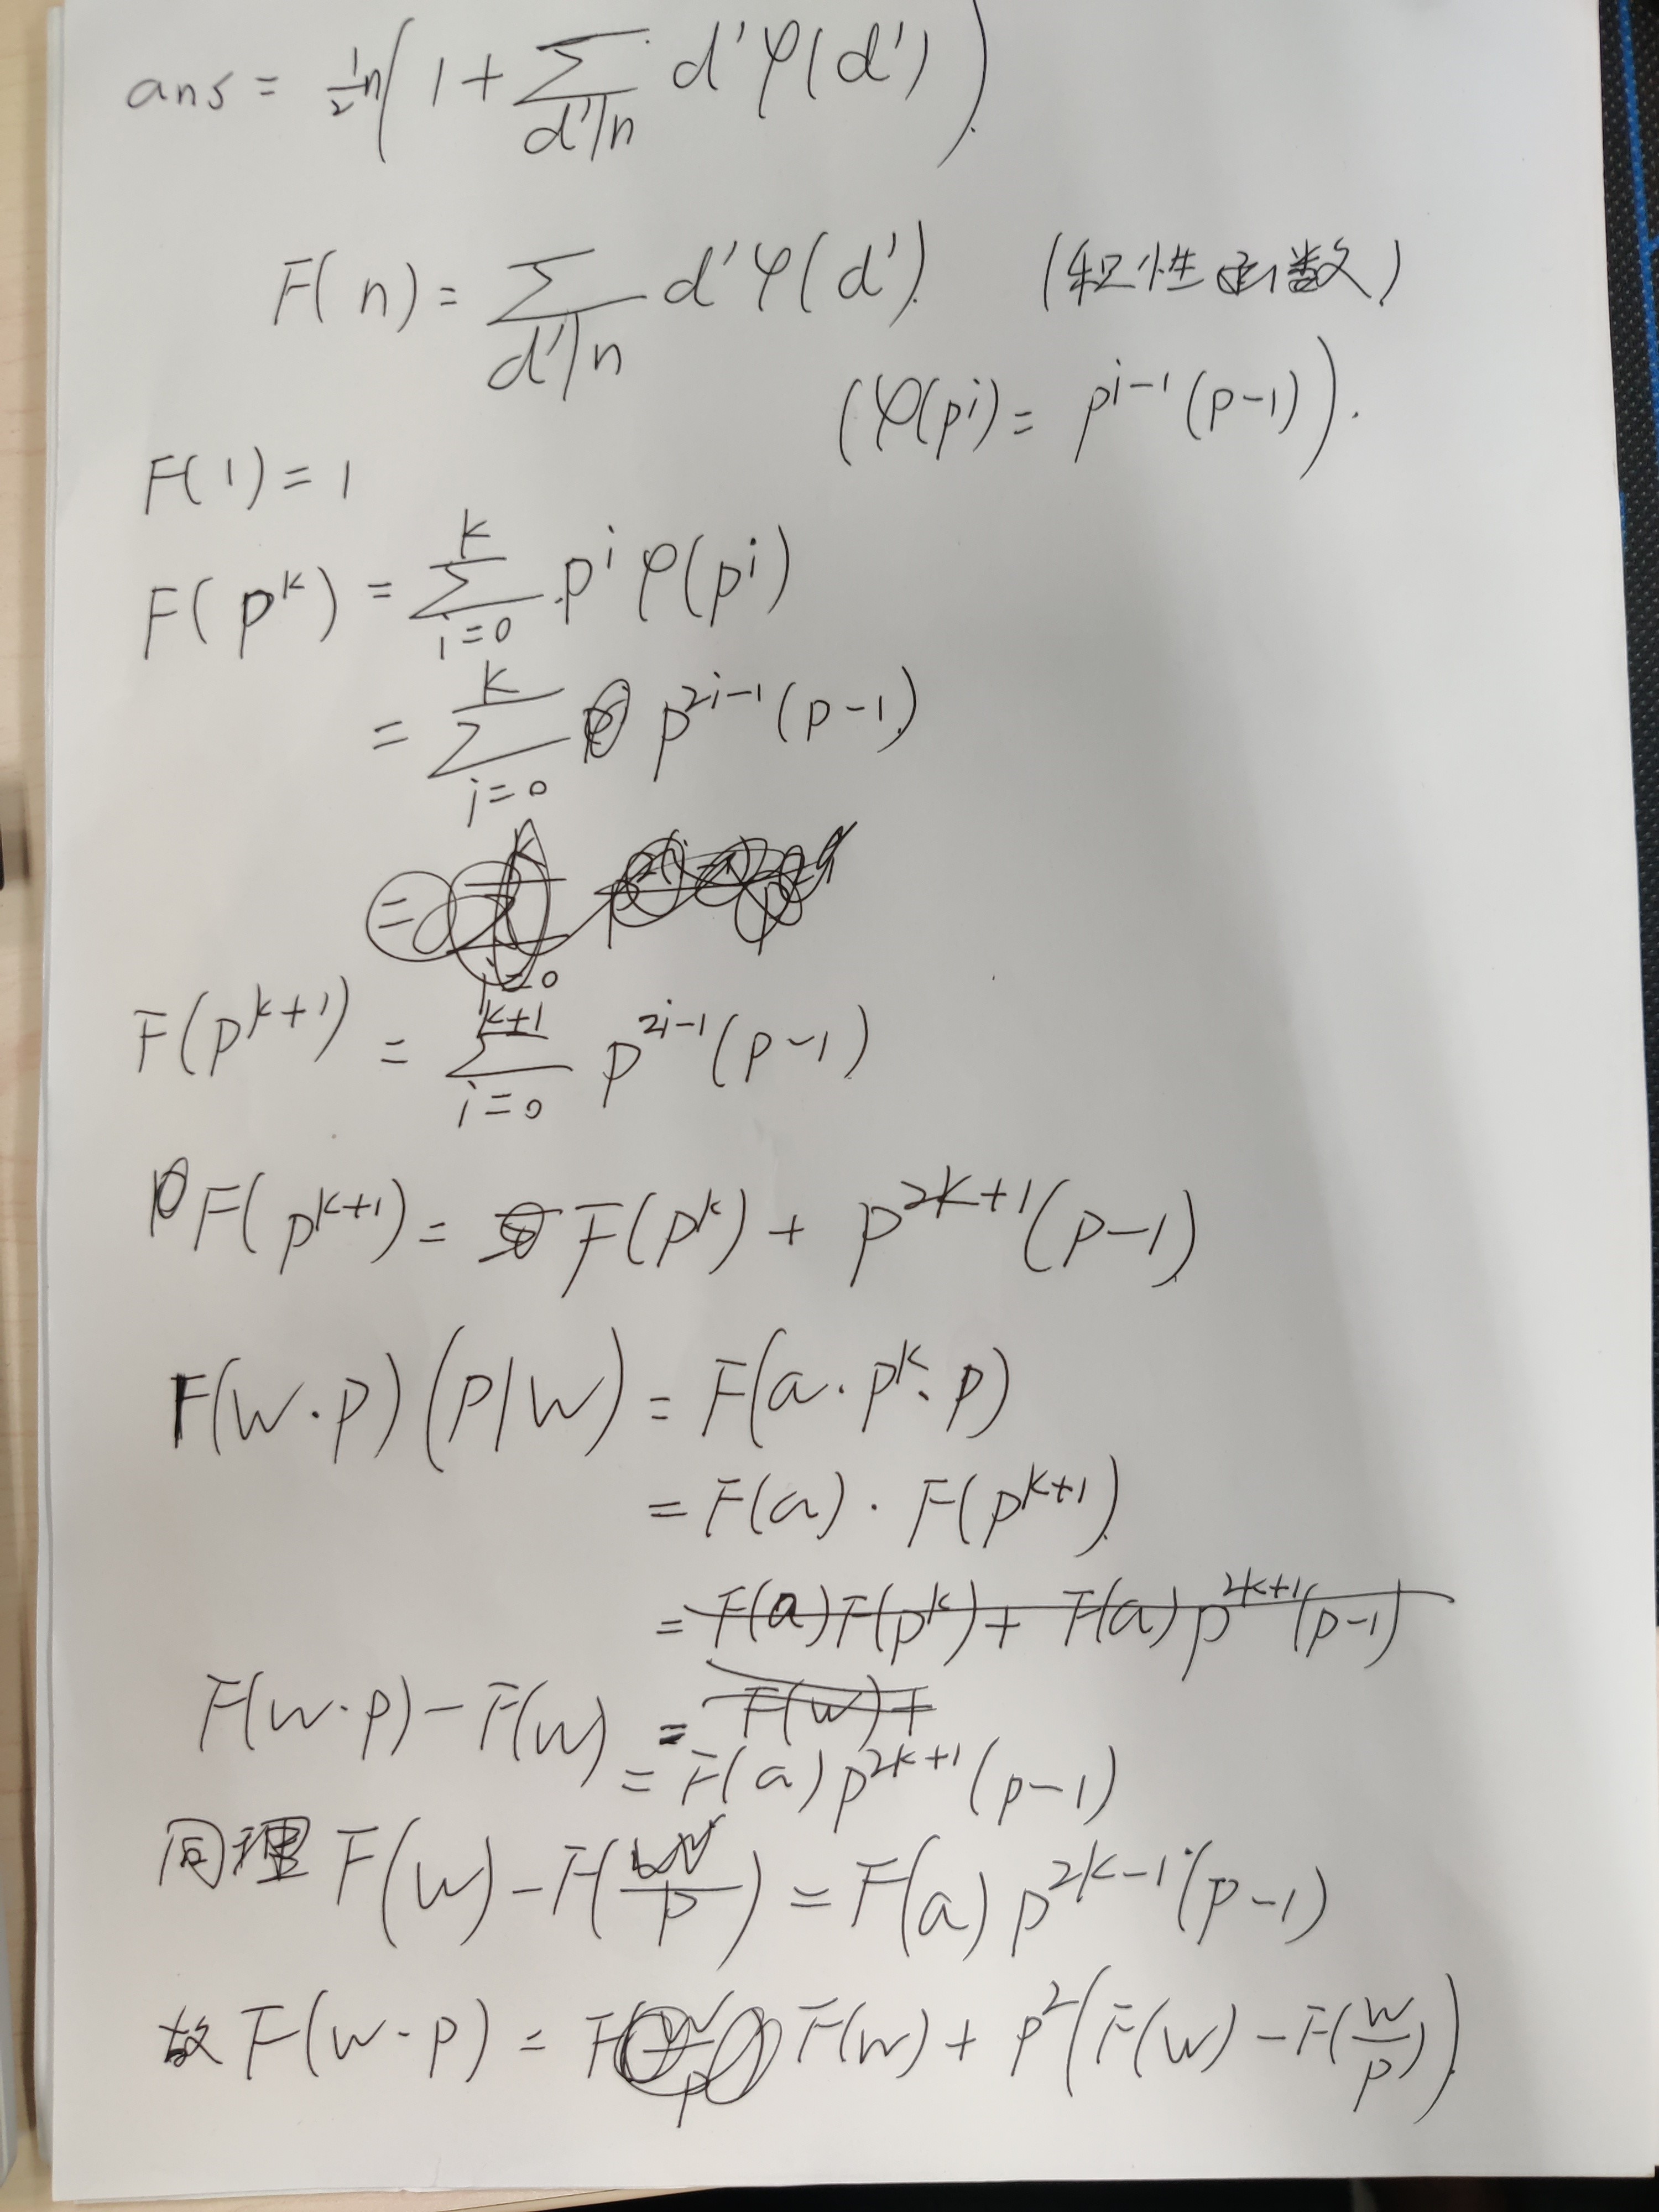 ans = ½n(1 + ∑_{d'|n} d'φ(d'))
F(n) = ∑_{d'|n} d'φ(d') (积性函数)
(φ(p^i) = p^{i-1}(p-1)).
F(1) = 1
F(p^k) = ∑_{i=0}^{k} p^i φ(p^i)
= ∑_{i=0}^{k} p^{2i-1}(p-1)
F(p^{k+1}) = ∑_{i=0}^{k+1} p^{2i-1}(p-1)
F(p^{k+1}) = F(p^k) + p^{2k+1}(p-1)
F(w·p)(p|w) = F(a·p^k·p)
= F(a)·F(p^{k+1})
= F(a)F(p^k) + F(a)p^{2k+1}(p-1)
F(w·p) - F(w) = F(w)+
= F(a)p^{2k+1}(p-1)
同理 F(w) - F(w/p) = F(a)p^{2k-1}(p-1)
故 F(w·p) = F(w) + p²(F(w) - F(w/p))